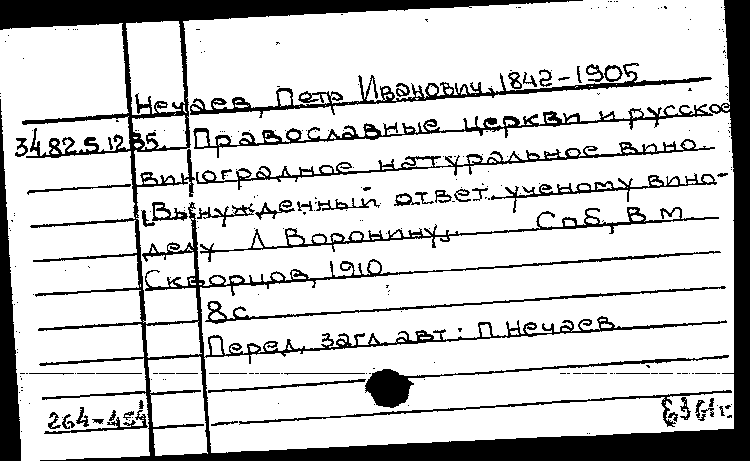 Нечаев, Петр Иванович, 1842-1905
34.82.5.1235. Православные церкви и русское
виноградное натуральное вино.
[Вынужденный ответ ученому вино-
делу Л Воронину]. Спб, В М
Скворцов, 1910
8с.
Перед. загл. авт: П Нечаев
264-454